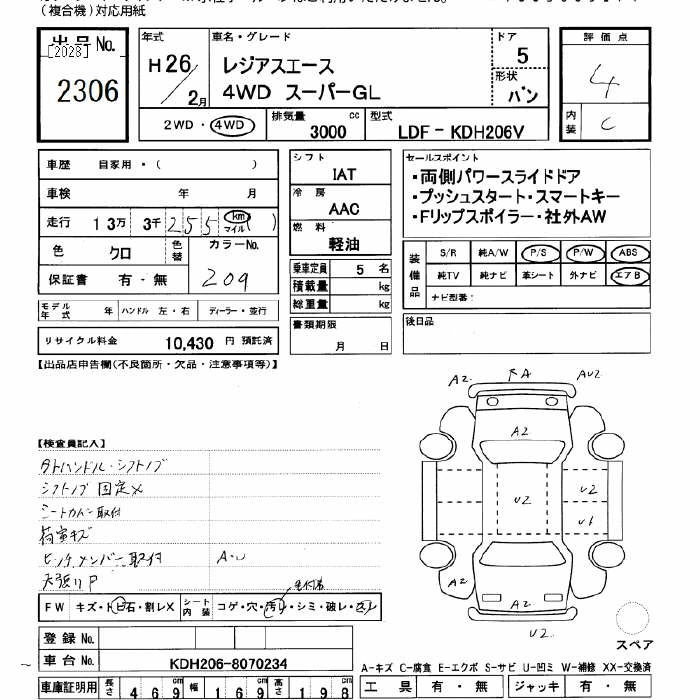 (複合機)対応用紙
出品No.
[2028]
2306
年式
H26/2月
車名・グレード
レジアスエース
4WD スーパーGL
ドア
5
形状
バン
評価点
4
内装
C
2WD・4WD
排気量
3000 cc
型式
LDF - KDH206V
車歴 自家用・( )
車検 年 月
走行 13万 3千 255 km マイル ( )
色 クロ
色替
カラーNo.
209
保証書 有・無
モデル年式 年 ハンドル 左・右 ディーラー・並行
リサイクル料金 10,430 円 預託済
シフト
IAT
冷房
AAC
燃料
軽油
乗車定員 5 名
積載量 kg
総重量 kg
書類期限
月 日
セールスポイント
・両側パワースライドドア
・プッシュスタート・スマートキー
・Fリップスポイラー・社外AW
装備品
S/R 純A/W P/S P/W ABS
純TV 純ナビ 革シート 外ナビ エアB
ナビ型番:
後日品
【出品店申告欄(不良箇所・欠品・注意事項等)】
A2 A AU2
A2
U2 U2
U1
A2 A2
A2
U2
スペア
【検査員記入】
タトハンドル・シフトノブ
シフトノブ 固定×
シートカバー取付
荷室キズ
ヒッチメンバー取付 A・U
天張りP
FW キズ・トビ石・割レX
シート内装 コゲ・穴・汚レ・シミ・破レ・スレ
登録No.
車台No. KDH206-8070234
A-キズ C-腐食 E-エクボ S-サビ U-凹ミ W-補修 XX-交換済
車庫証明用 長さ 469 cm 幅 169 cm 高さ 198 cm
工具 有・無 ジャッキ 有・無